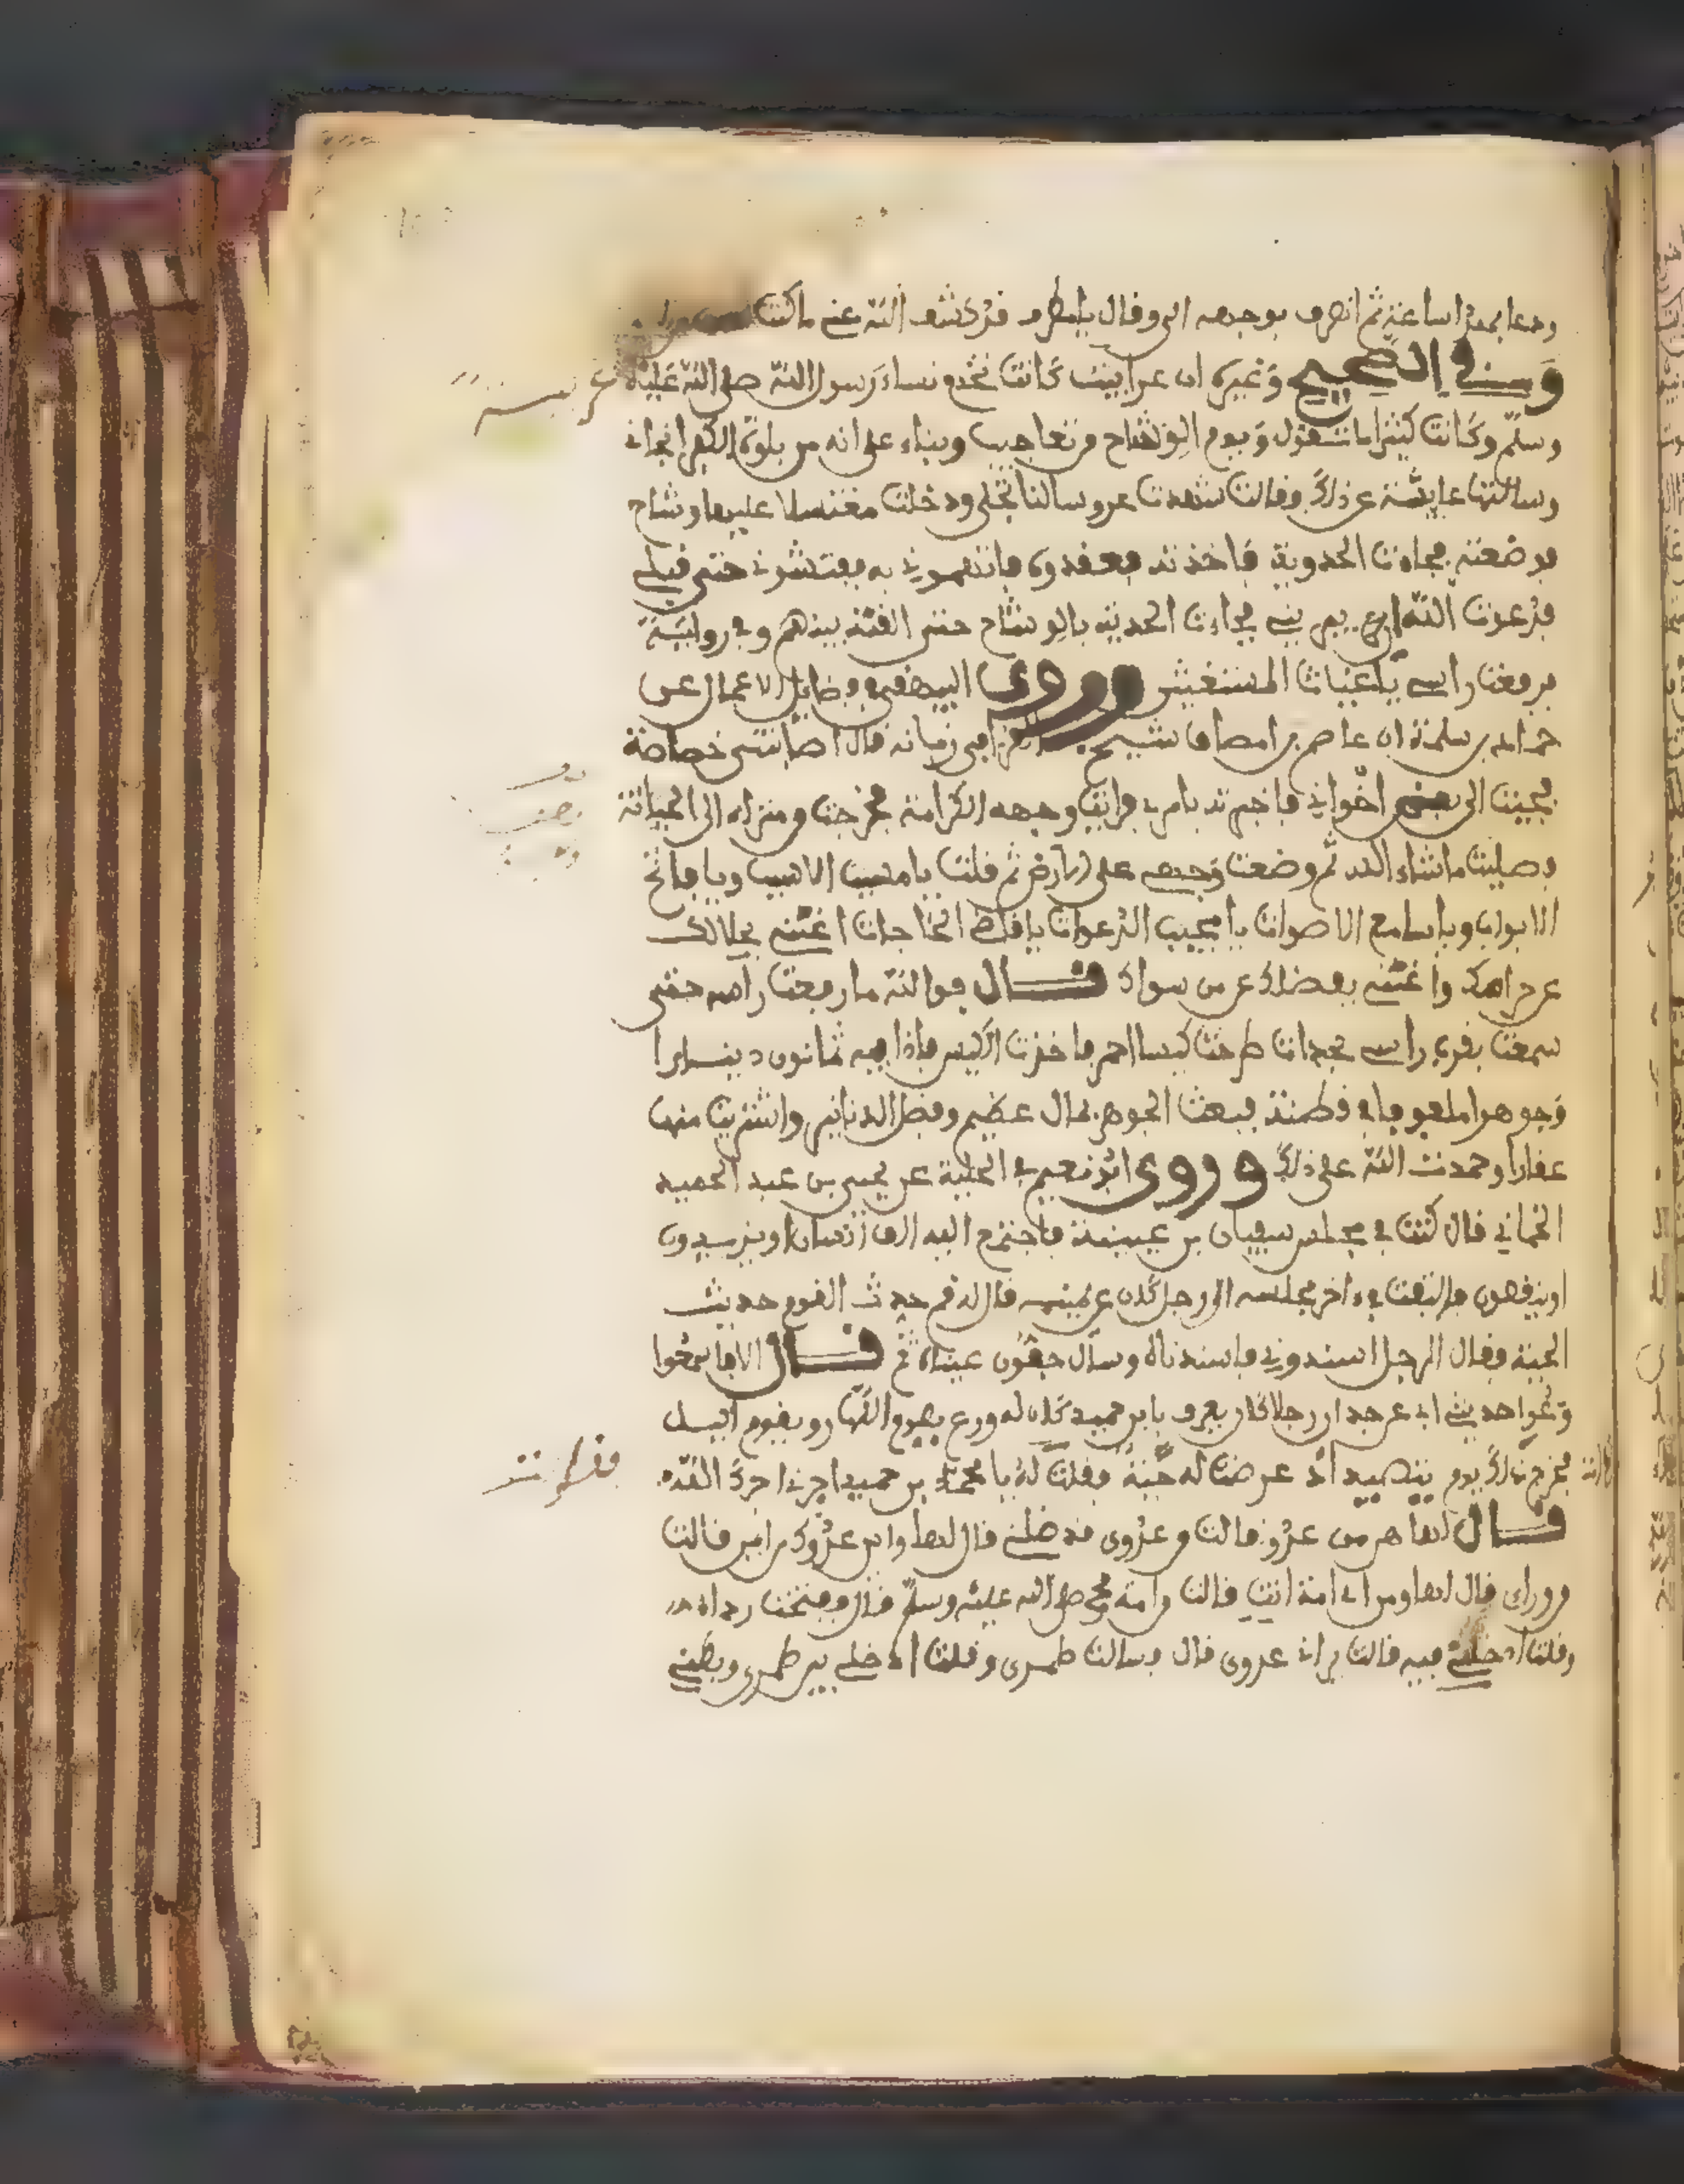 ودعا بهذا ساعة ثم انصرف بوجهه الي وقال يا مطرف قد كشف الله عني ما كنت
وفي الصحيح وغيره ان عرابية كانت تخدم نساء رسول الله صلى الله عليه
وسلم وكانت كثيرا ما تتمثل ويوم الوشاح من تعاجيب ربنا على انه من بلدة الكفر انجاني
وسالتها عايشة عن ذلك فقالت شهدت عروسا لنا تجلى ودخلت مغتسلا عليها وشاح
فوضعته فجاءت الحدوية فاخذته ففقدوه فاتهموني به ففتشوني حتى قبلي
فدعوت الله ان يبريني فجاءت الحدية بالوشاح حتى القته بينهم وفي رواية
فرفعت راسي يا غياث المستغيثين وروى البيهقي في فضايل الاعمال عن
حماد بن سلمة ان عاصم بن اسحاق شيخ القراء في زمانه قال اصابتني خصاصة
فجيت الى بعض اخواني فاخبرته بامري فرايت في وجهه الكرامة فخرجت من منزله الى الجبانة
فصليت ما شاء الله ثم وضعت وجهي على الارض ثم قلت يا مسبب الاسباب ويا فاتح
الابواب ويا سامع الاصوات يا مجيب الدعوات يا قاضي الحاجات اغنني بحلالك
عن حرامك واغنني بفضلك عن من سواك قال فوالله ما رفعت راسي حتى
سمعت بقرب راسي فحدات طرحت كيسا احمر فاخذت الكيس فاذا فيه ثمانون دينارا
وجوهرا ملفوفا في قطنة فبعت الجوهر بمال عظيم وفضل الدنانير واشتريت منها
عقارا وحمدت الله على ذلك وروى ابو نعيم في الحلية عن يحيى بن عبد الحميد
الحماني قال كنت في مجلس سفيان بن عيينة فاجتمع اليه الف انسان او يزيدون
او ينقصون فالتفت في ءاخر مجلسه الى رجل كان عن يمينه فقال له قم حدث القوم حديث
الحية فقال الرجل اسندوني فاسندناه وسال جفون عيناه ثم قال الا فاسمعوا
وعوا حدثني ابي عن جدي ان رجلا كان يعرف بابن حمير كان له ورع يصوم النهار ويقوم اليل
فخرج ذلك يوم يتصيد اذ عرضت له حية فقلت له يا محمد بن حمير اجرني اجرك الله
قال لها من من عدو قالت من عدوي قد ظلمني قال لها واين عدوك من اين قالت
من وراي قال لها ومن اي امة انت قالت من امة محمد صلى الله عليه وسلم قال ففتحت رداءي
وقلت ادخلي فيه قالت يراني عدوي قال فسالت طمري وقلت ادخلي بين طمري وبطني